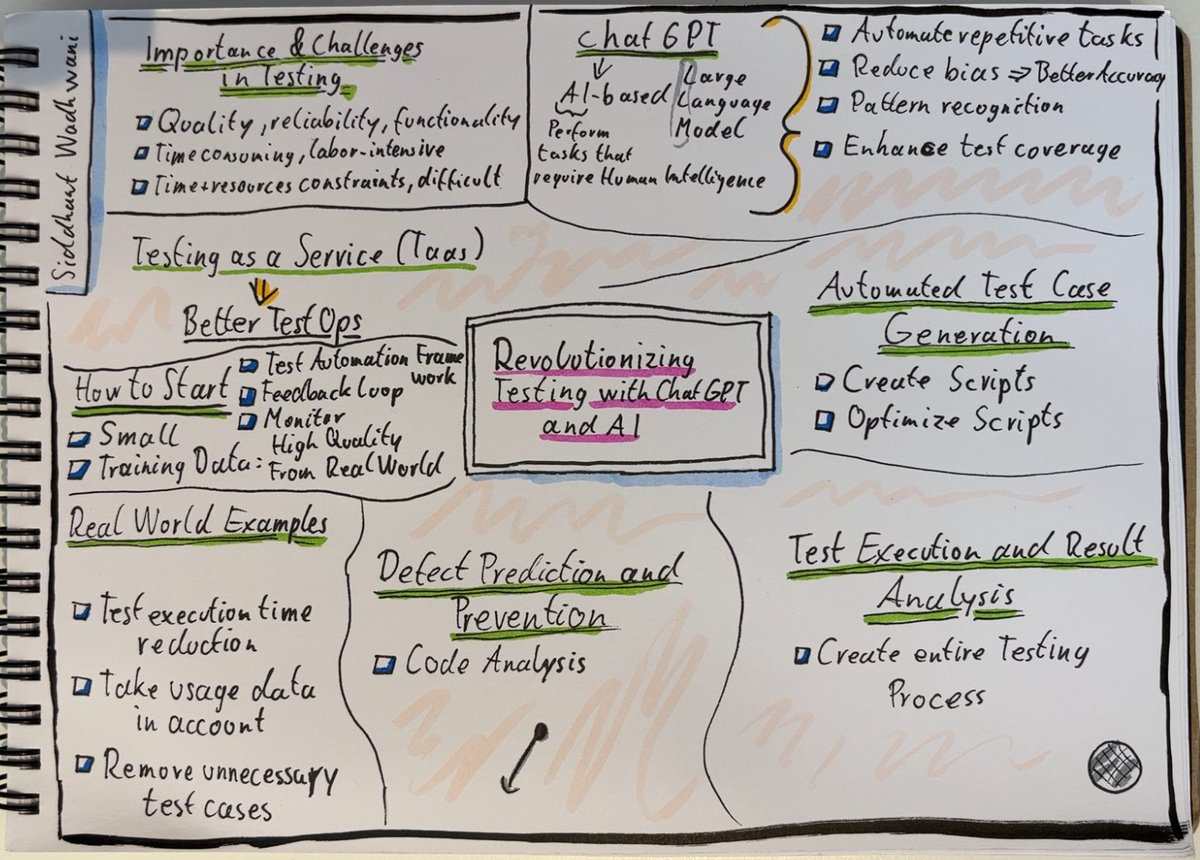 Siddhant Wadhwani
Importance & Challenges
in Testing
Quality, reliability, functionality
Time consuming, labor-intensive
Time+resources constraints, difficult
Chat GPT
AI-based
Large
Language
Model
Perform
tasks that
require Human Intelligence
Automate repetitive tasks
Reduce bias ⇒ Better Accuracy
Pattern recognition
Enhance test coverage
Testing as a Service (TaaS)
Better Test Ops
How to Start
Small
Training Data: High Quality
From Real World
Test Automation Frame
work
Feedback Loop
Monitor
Revolutionizing
Testing with Chat GPT
and AI
Automated Test Case
Generation
Create Scripts
Optimize Scripts
Real World Examples
Test execution time
reduction
Take usage data
in account
Remove unnecessary
test cases
Defect Prediction and
Prevention
Code Analysis
Test Execution and Result
Analysis
Create entire Testing
Process